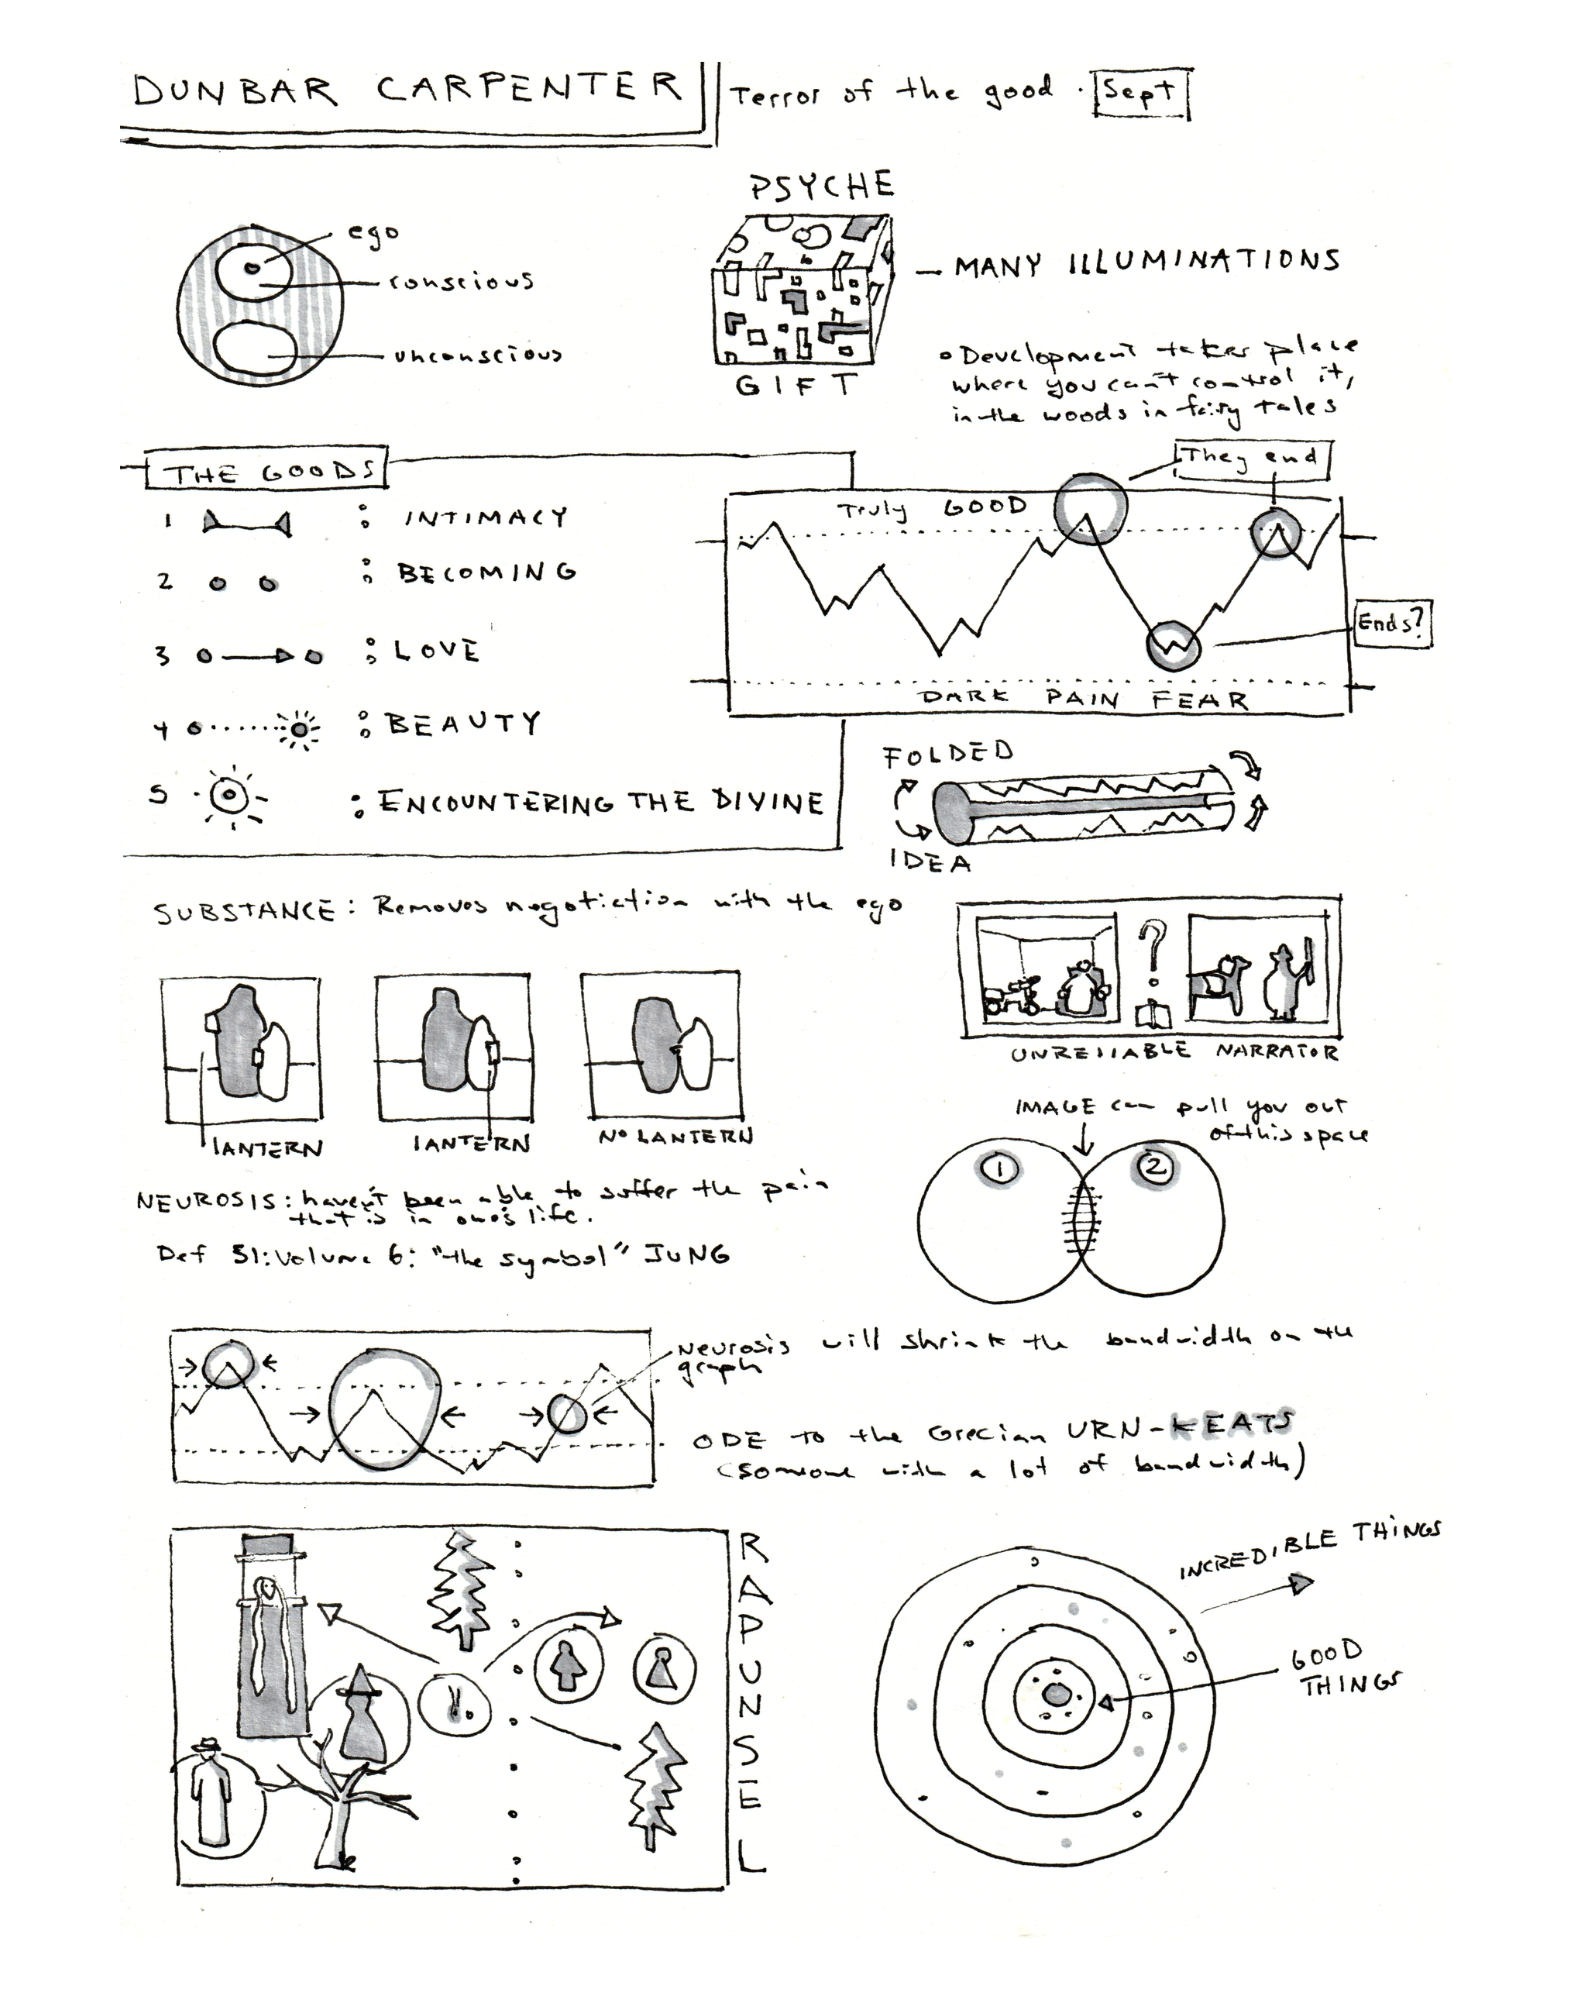 DUNBAR CARPENTER
Terror of the good · Sept
PSYCHE
GIFT
ego
conscious
unconscious
– MANY ILLUMINATIONS
o Development takes place
where you can't control it,
in the woods in fairy tales
THE GOODS
1 : INTIMACY
2 : BECOMING
3 : LOVE
4 : BEAUTY
5 : ENCOUNTERING THE DIVINE
They end
Truly GOOD
Ends?
DARK PAIN FEAR
FOLDED
IDEA
SUBSTANCE: Removes negotiction with the ego
LANTERN
LANTERN
NO LANTERN
?
UNRELIABLE NARRATOR
IMAGE can pull you out
of this space
1
2
NEUROSIS: haven't been able to suffer the pain
that is in one's life.
Def 51: Volume 6: "the symbol" JUNG
Neurosis will shrink the bandwidth on the
graph
ODE to the Grecian URN - KEATS
(someone with a lot of bandwidth)
RAPUNSEL
INCREDIBLE THINGS
GOOD
THINGS